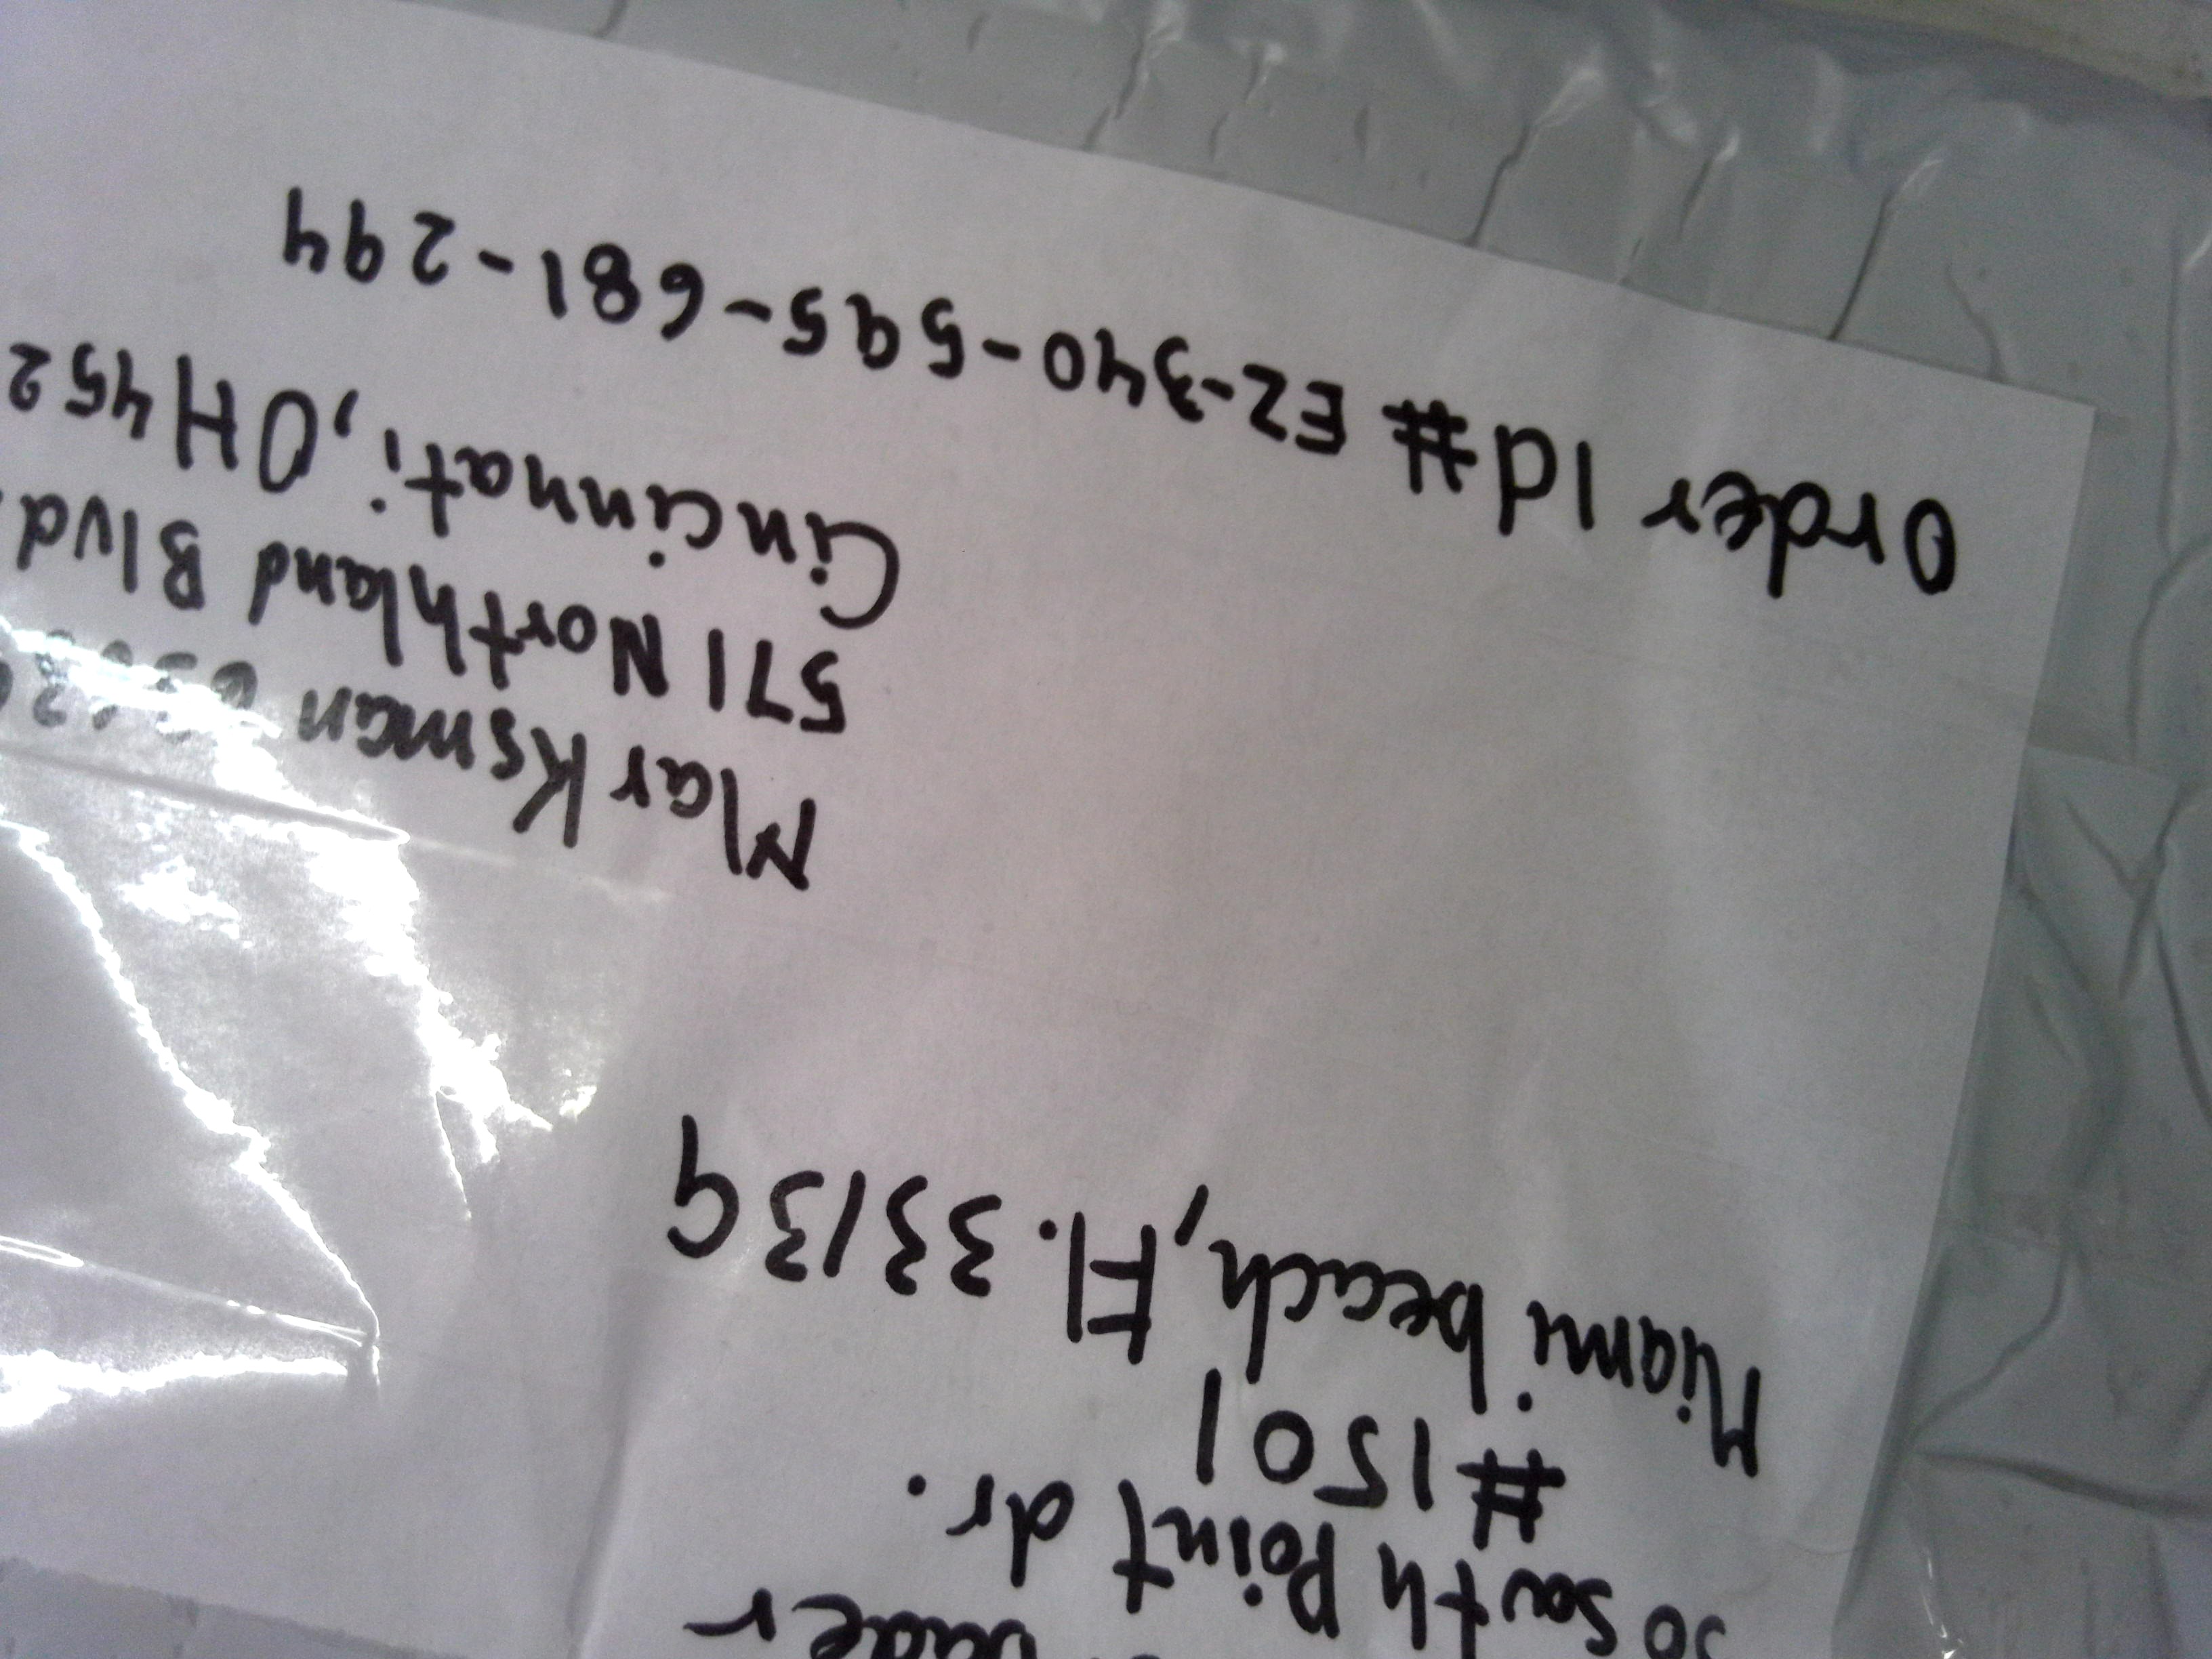 South Point dr.
#1501
Miami beach, Fl. 33139
Marksman
571 Northland Blvd.
Cincinnati, OH 452
Order Id # E2-340-595-681-294